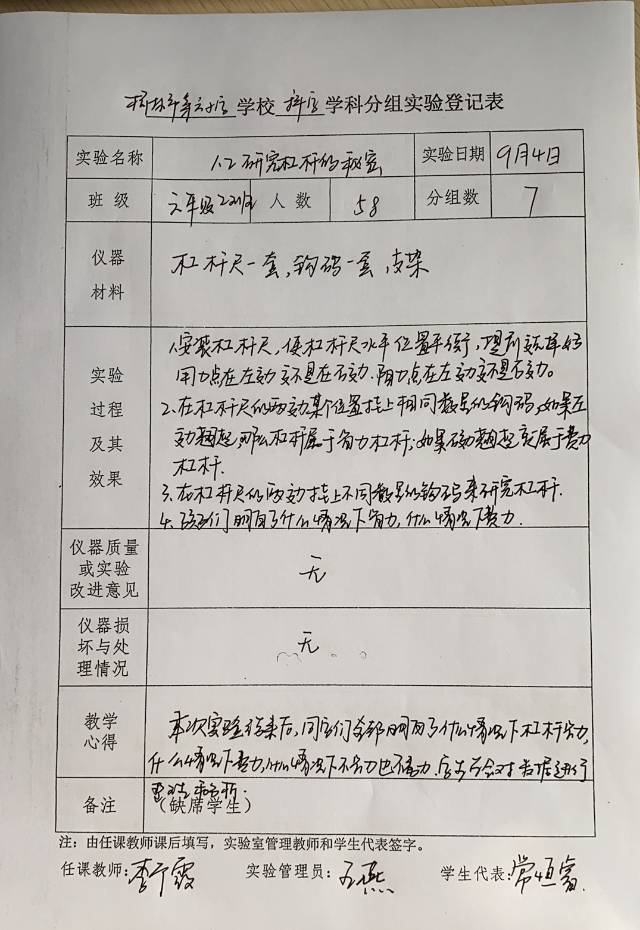 榆林市第六小学 学校 科学 学科分组实验登记表
实验名称 1.2 研究杠杆的秘密 实验日期 9月4日
班 级 六年级 人 数 58 分组数 7
仪器
材料
杠杆尺一套,钩码一套,支架
实验
过程
及其
效果
1.安装杠杆尺,使杠杆尺水平位置平衡,提前选择好
用力点在左边还是在右边.阻力点在左边还是右边。
2.在杠杆尺的两边某个位置挂上相同数量的钩码,如果左
边翘起,那么杠杆属于省力杠杆;如果右边翘起就属于费力
杠杆.
3.在杠杆尺的两边挂上不同数量的钩码来研究杠杆.
4.孩子们明白了什么情况下省力,什么情况下费力.
仪器质量
或实验
改进意见
无
仪器损
坏与处
理情况
无
教学
心得
本次实验结束后,同学们全部明白了什么情况下杠杆省力,
什么情况下费力,什么情况下不省力也不费力.学会对数据进行
备注
(缺席学生)
注:由任课教师课后填写,实验室管理教师和学生代表签字。
任课教师: 实验管理员:王燕 学生代表:常恒富